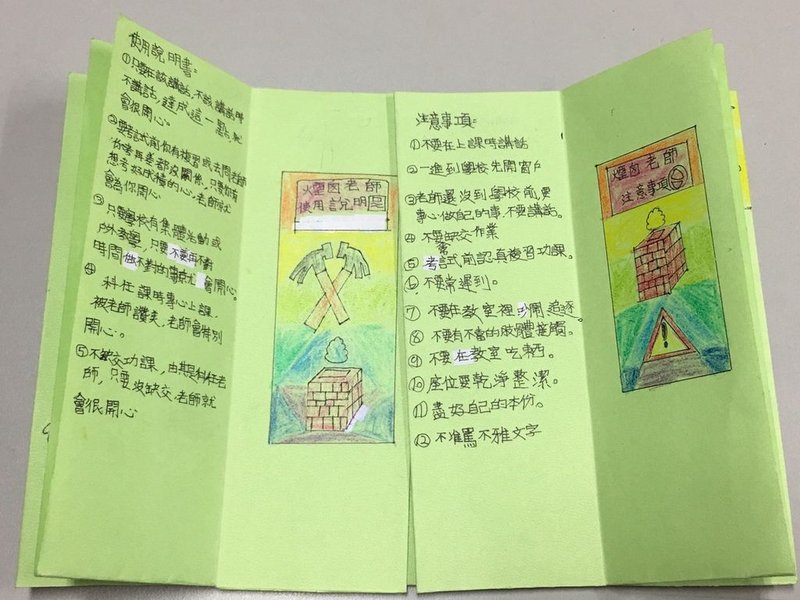 使用說明書:
①只要在該講話,不該講話時
不講話,達成這一點,就
會很開心。
②要考試前你有複習或去問老師
你考再差都沒關係,只要你有
想考好成績的心,老師就
會為你開心
③只要學校有集體活動或
戶外教學,只要不要再不對
時間做不對的事就會開心。
④科任課時專心上課
被老師讚美,老師會特別
開心。
⑤不缺交功課,尤其是科任老
師,只要沒缺交,老師就
會很開心
煙囪老師
使用說明
注意事項:
①不要在上課時講話
②一進到學校先開窗戶
③老師還沒到學校前,要
專心做自己的事,不要講話。
④不要缺交作業
⑤考試前認真複習功課。
⑥不要常遲到。
⑦不要在教室裡跑鬧追逐。
⑧不要有不當的肢體接觸。
⑨不要在教室吃東西。
⑩座位要乾淨整潔。
⑪盡好自己的本份。
⑫不准罵不雅文字
煙囪老師
注意事項